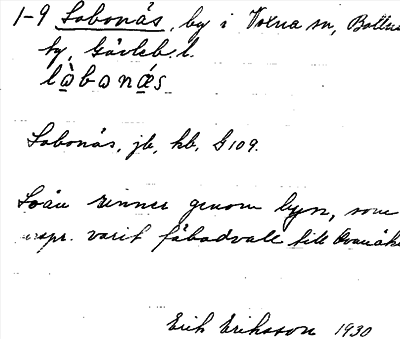 1-9 Lobonäs, by i Voxna sn, Bollnäs
ky, Gävleb. l.
lòbonǽs
Lobonäs, jb, kb, G 109.
Loån rinner genom byn, som
urspr. varit fäbodvall till Ovanåker
Erik Eriksson 1930